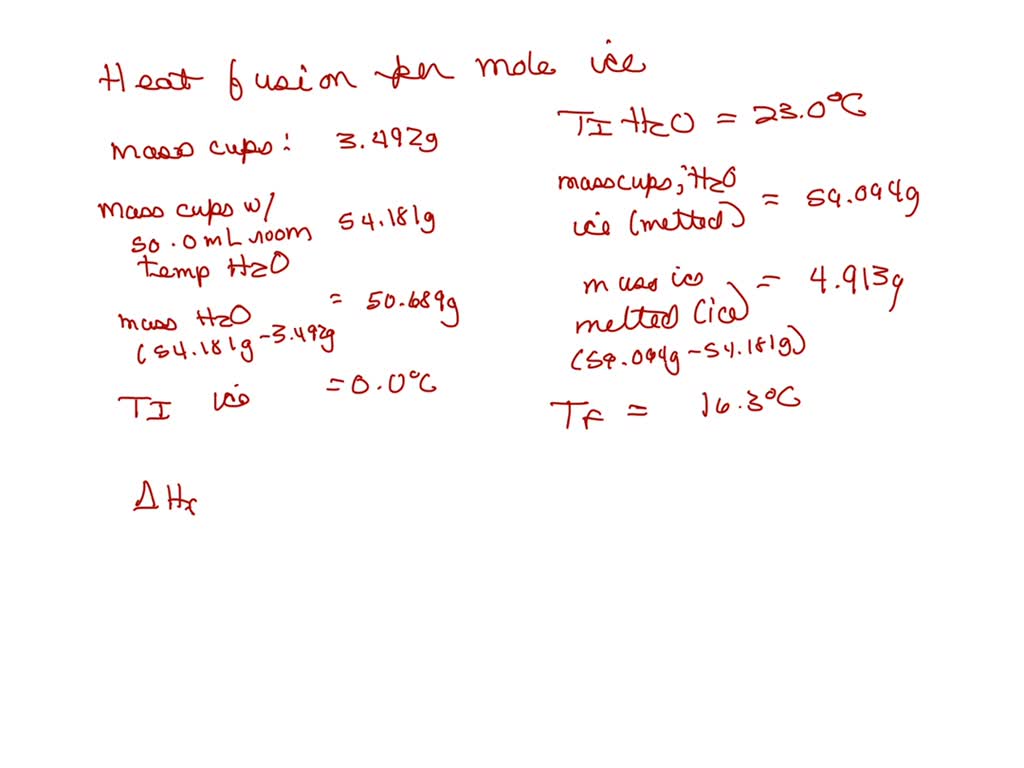 Heat fusion per mole ice
mass cups: 3.492g
mass cups w/
50.0mL room
temp H2O
54.181g
mass H2O
(54.181g-3.492g
= 50.689g
TI ice = 0.0°C
TI H2O = 23.0°C
mass cups, H2O
ice (melted)
= 59.094g
mass ice
melted (ice)
(59.094g-54.181g)
= 4.913g
TF = 16.3°C
ΔHf